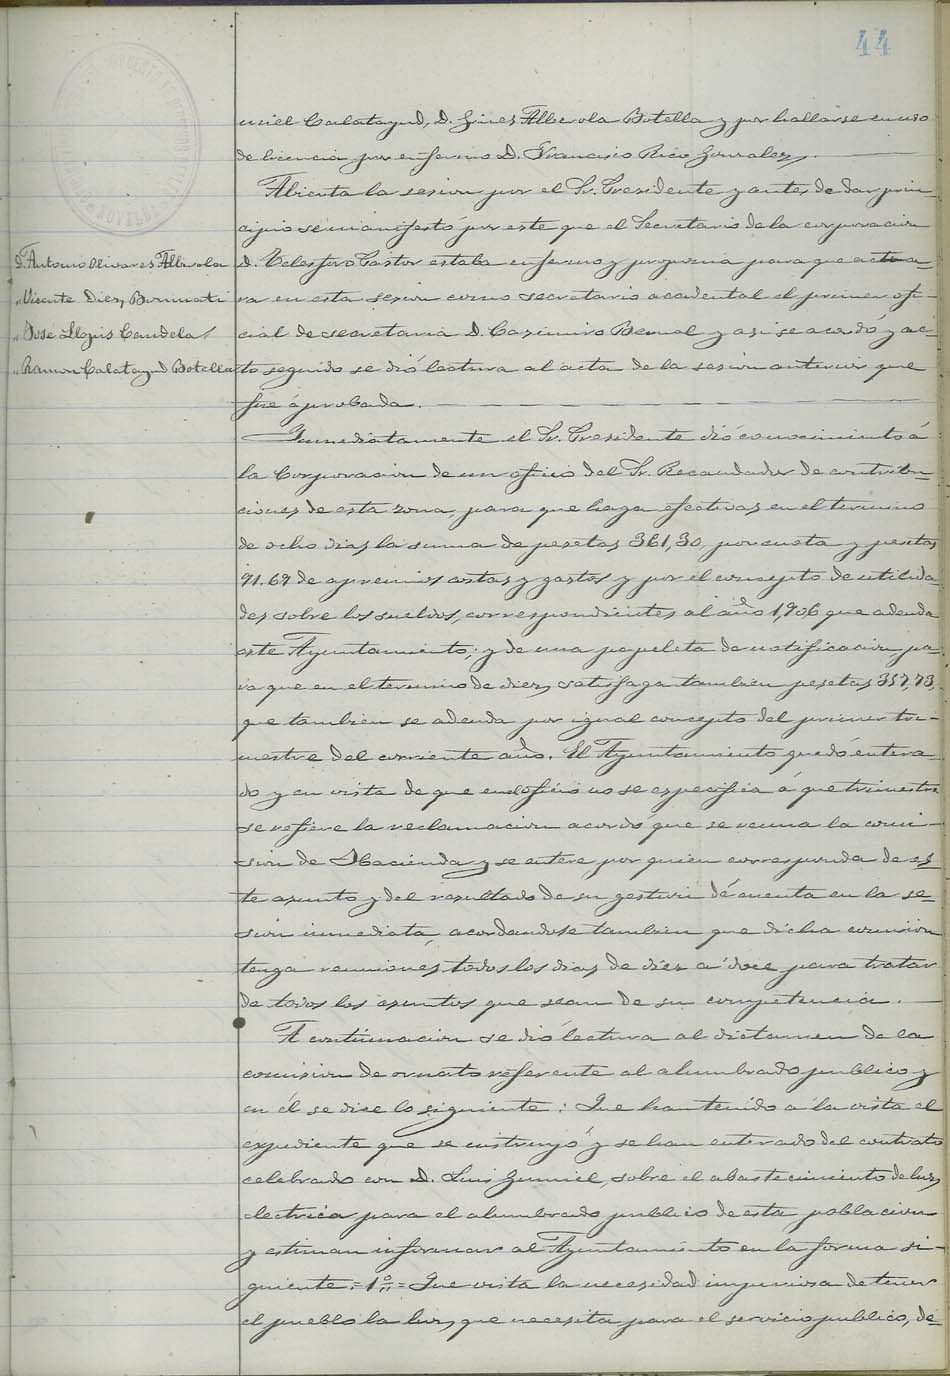 44
D. Antonio Olivares Alberola
" Vicente Diez Bermati
" José Llopis Candela
" Ramon Calatayud Botella
miel Calatayud, D. Gines Alberola Botella y por hallarse en uso
de licencia por enfermo D. Francisco Rico Gonzalez.
Abierta la sesion por el Sr. Presidente y antes de dar prin-
cipio se manifestó por este que el Secretario de la corporacion
D. Telesforo Pastor estaba enfermo y proponia para que actua-
ra en esta sesion como secretario accidental el primer ofi-
cial de secretaria D. Casimiro Bernal y asi se acordó y ac-
to seguido se dió lectura al acta de la sesion anterior que
fué aprobada.
Inmediatamente el Sr. Presidente dió conocimiento á
la Corporacion de un oficio del Sr. Recaudador de contribu-
ciones de esta zona, para que haga efectivas en el termino
de ocho dias la suma de pesetas 361,30 por cuota y pesetas
91.69 de apremios costas y gastos y por el concepto de utilida-
des sobre los sueldos, correspondientes al año 1,906 que adeuda
este Ayuntamiento; y de una papeleta de notificacion pa-
ra que en el termino de diez, satisfaga tambien pesetas 357,73,
que tambien se adeuda por igual concepto del primer tri-
mestre del corriente año. El Ayuntamiento quedó entera-
do y en vista de que en el oficio no se especifica á que trimestre
se refiere la reclamacion acordó que se reuna la comi-
sion de Hacienda y se entere por quien corresponda de es-
te asunto y del resultado de su gestion dé cuenta en la se-
sion inmediata, acordandose tambien que dicha comision
tenga reuniones todos los dias de diez a doce para tratar
de todos los asuntos que sean de su competencia.
A continuacion se dió lectura al dictamen de la
comision de ornato referente al alumbrado publico y
en él se dice lo siguiente: Que han tenido a la vista el
expediente que se instruyó y se han enterado del contrato
celebrado con D. Luis Gumiel, sobre el abastecimiento de luz
electrica para el alumbrado publico de esta poblacion
y estiman informar al Ayuntamiento en la forma si-
guiente = 1º = Que vista la necesidad imperiosa de tener
el pueblo la luz, que necesita para el servicio publico, de-